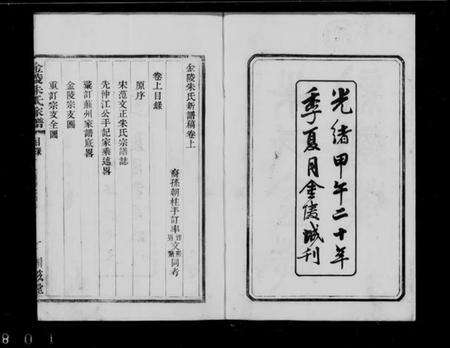 光緒甲午二十年
季夏月金陵城刊
金陵朱氏新譜稿卷上
裔孫朝柱手訂率
文
同考
卷上目錄
原序
宋范文正朱氏宗譜誌
先仲江公手記家乘述畧
彙訂蘇州家譜底畧
金陵宗支圖
重訂宗支全圖
金陵朱氏家譜
目錄
801